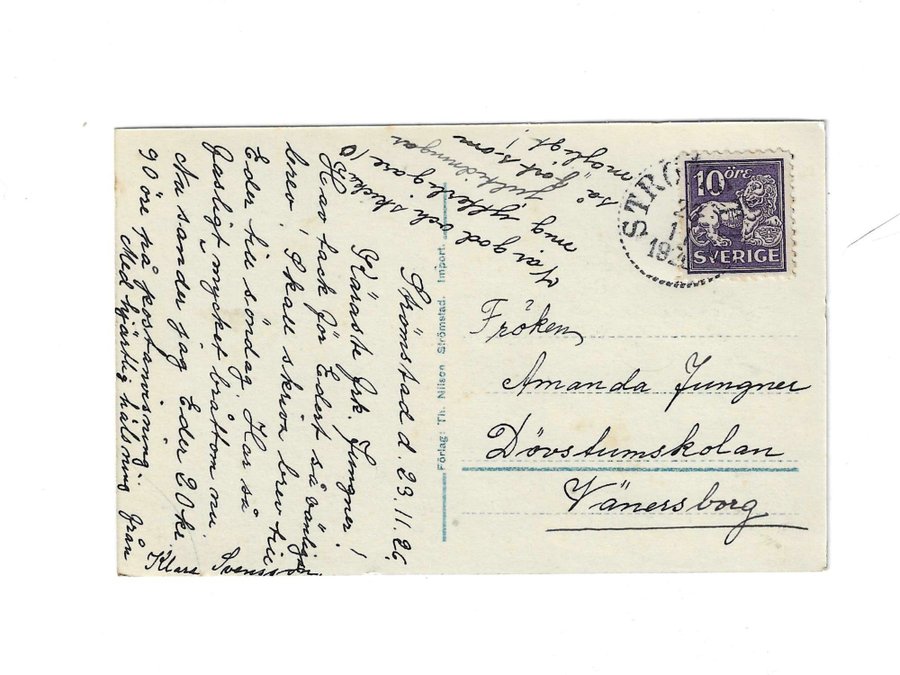 Strömstad d. 23.11.26.
Käraste Frk. Jungner!
Hav tack för Edert så vänliga
brev! Skall skriva brev till
Eder till söndag. Har så
gasligt mycket bråttom nu.
Nu sänder jag Eder 20 kr.
90 öre på postanvisning.
Med hjärtlig hälsning från
Klara Svensson
Var god och skicka
mig ytterligare 10
jultidningar
så fort som
möjligt!
Förlag: Th. Nilson Strömstad. Import.
STRÖ
10 ÖRE
SVERIGE
Fröken
Amanda Jungner
Dövstumskolan
Vänersborg